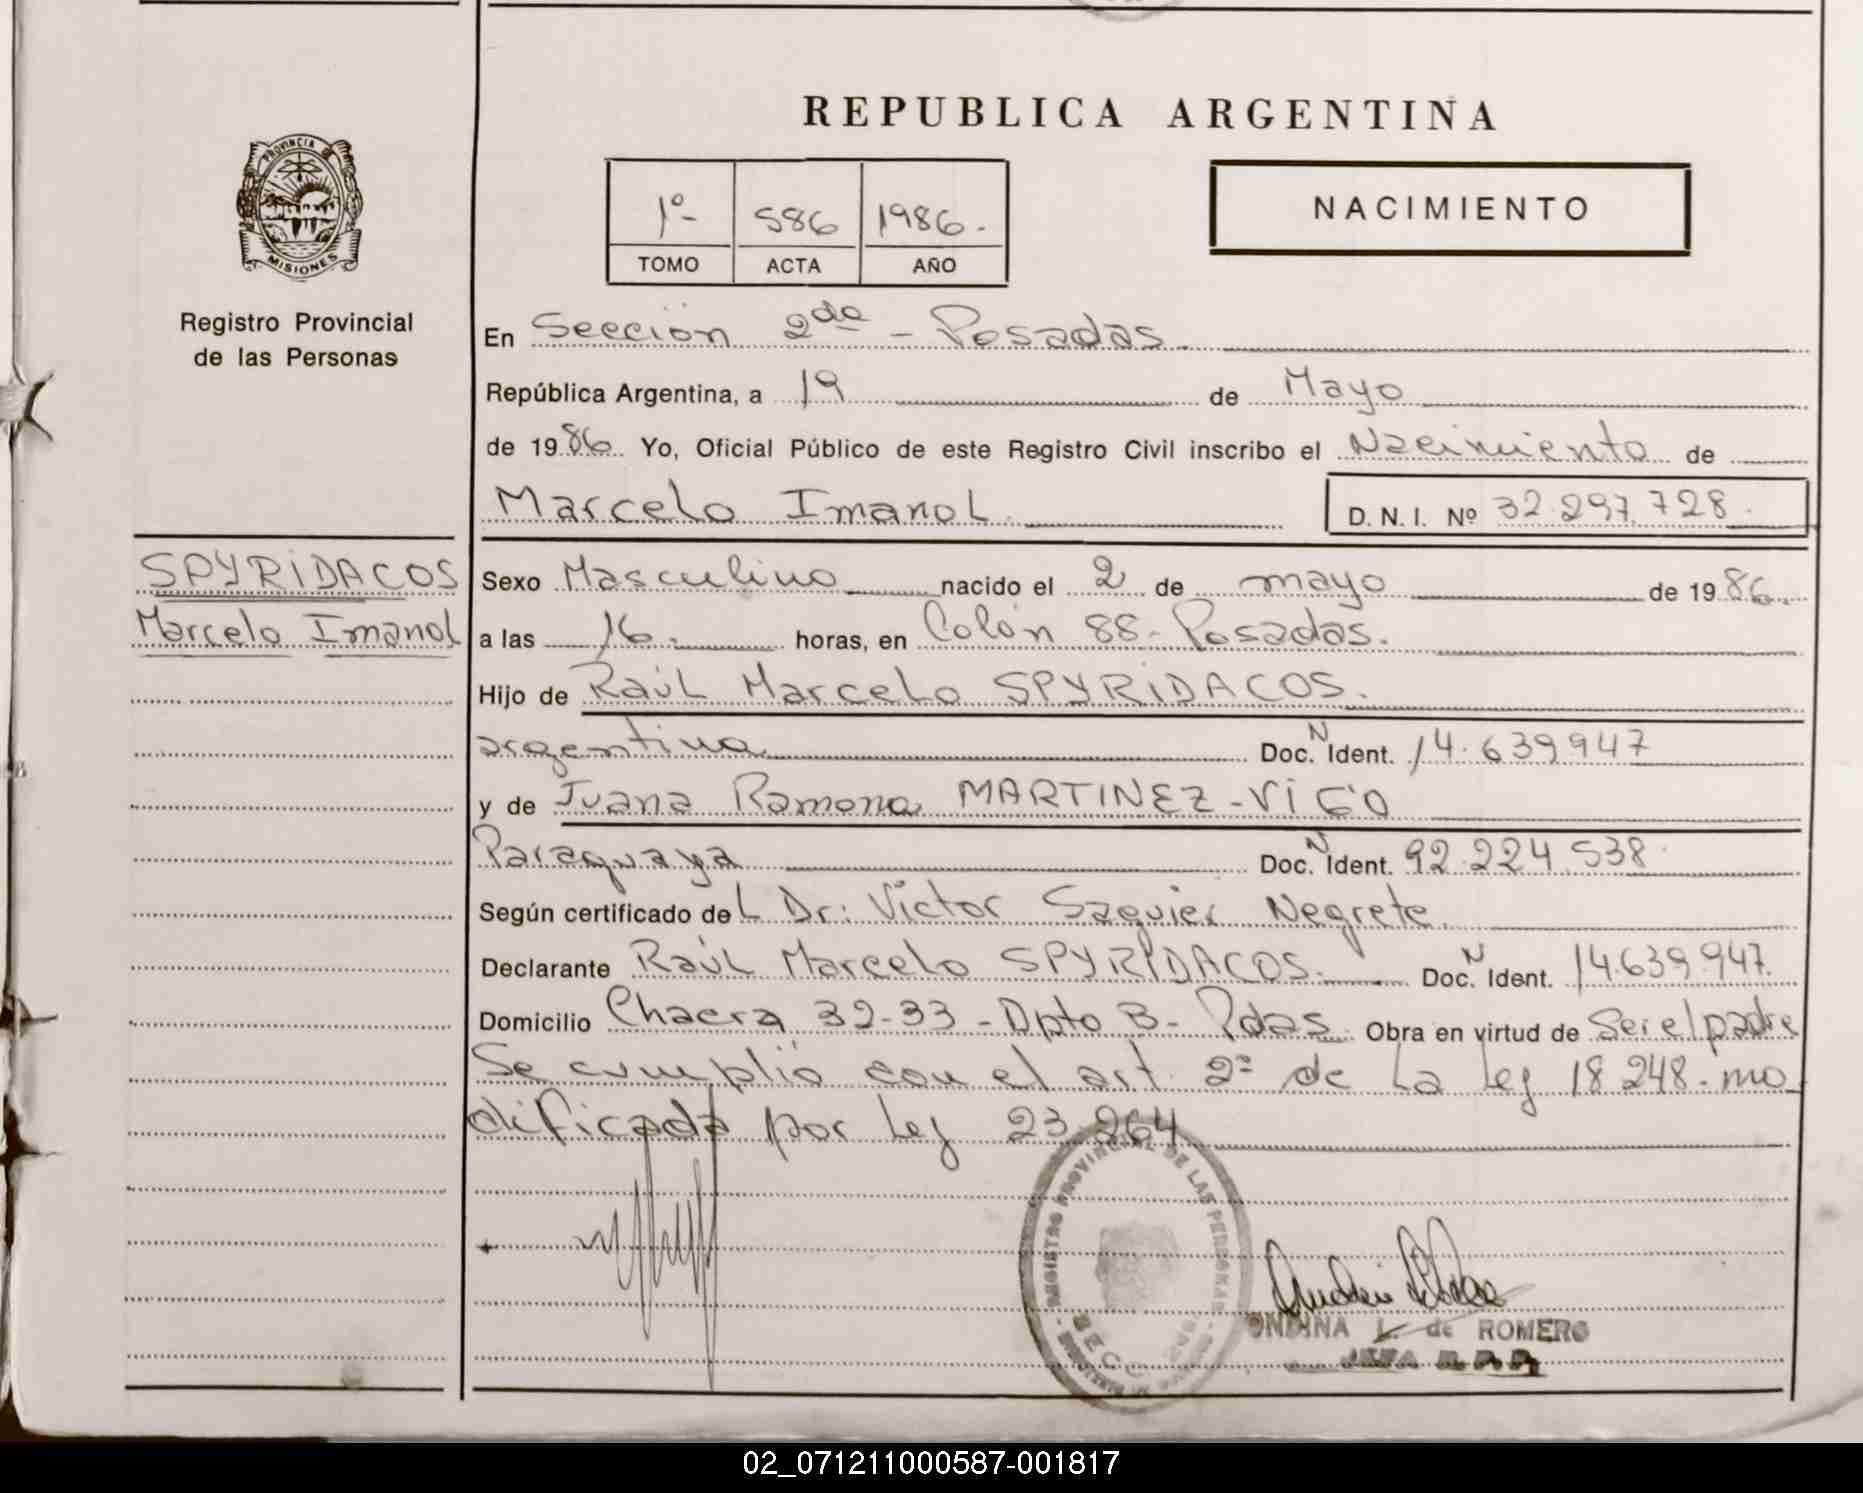 REPUBLICA ARGENTINA
PROVINCIA DE
MISIONES
Registro Provincial
de las Personas
1º- 586 1986.
TOMO ACTA AÑO
NACIMIENTO
En Sección 2da - Posadas.
República Argentina, a 19 de Mayo
de 1986. Yo, Oficial Público de este Registro Civil inscribo el Nacimiento de
Marcelo Imanol. D. N. I. Nº 32.297.728.
SPYRIDACOS
Marcelo Imanol
Sexo Masculino nacido el 2 de mayo de 1986.
a las 16. horas, en Colón 88- Posadas.
Hijo de Raúl Marcelo SPYRIDACOS.
argentina Doc. N Ident. 14.639947
y de Juana Ramona MARTINEZ-VIGO
Paraguaya Doc. N Ident. 92.224.538.
Según certificado del Dr: Victor Saguier Negrete.
Declarante Raúl Marcelo SPYRIDACOS. Doc. N Ident. 14.639.947.
Domicilio Chacra 32-33 - Dpto B- Pdas. Obra en virtud de Ser el padre
Se cumplió con el art. 2º de la ley 18.248. mo
dificada por ley 23.264
REGISTRO PROVINCIAL DE LAS PERSONAS
ONDINA L. de ROMERO
JEFA R.P.P.
02_071211000587-001817